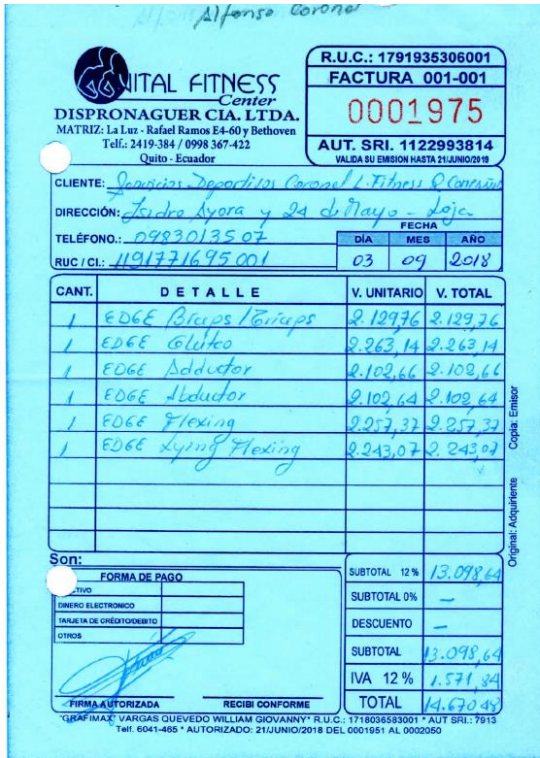 Alfonso Coronel
VITAL FITNESS
Center
DISPRONAGUER CIA. LTDA.
MATRIZ: La Luz - Rafael Ramos E4-60 y Bethoven
Telf.: 2419-384 / 0998 367-422
Quito - Ecuador
R.U.C.: 1791935306001
FACTURA 001-001
0001975
AUT. SRI. 1122993814
VALIDA SU EMISION HASTA 21/JUNIO/2019
CLIENTE: Servicios Deportivos Coronel L. Fitness & Conexión
DIRECCIÓN: Isidro Ayora y 24 de Mayo - Loja
TELÉFONO.: 0983013507
RUC / CI.: 1191771695001
FECHA
DÍA MES AÑO
03 09 2018
CANT. DETALLE V. UNITARIO V. TOTAL
1 EDGE Biceps / Triceps 2.129,76 2.129,76
1 EDGE Gluteo 2.263,14 2.263,14
1 EDGE Adductor 2.102,66 2.102,66
1 EDGE Abductor 2.102,64 2.102,64
1 EDGE Flexing 2.257,37 2.257,37
1 EDGE Lying Flexing 2.243,07 2.243,07
Original: Adquiriente Copia: Emisor
Son:
FORMA DE PAGO
CTIVO
DINERO ELECTRONICO
TARJETA DE CRÉDITO/DEBITO
OTROS
FIRMA AUTORIZADA RECIBI CONFORME
SUBTOTAL 12 % 13.098,64
SUBTOTAL 0% —
DESCUENTO —
SUBTOTAL 13.098,64
IVA 12 % 1.571,84
TOTAL 14.670,48
"GRAFIMAX" VARGAS QUEVEDO WILLIAM GIOVANNY" R.U.C.: 1718036583001 * AUT SRI.: 7913
Telf. 6041-465 * AUTORIZADO: 21/JUNIO/2018 DEL 0001951 AL 0002050